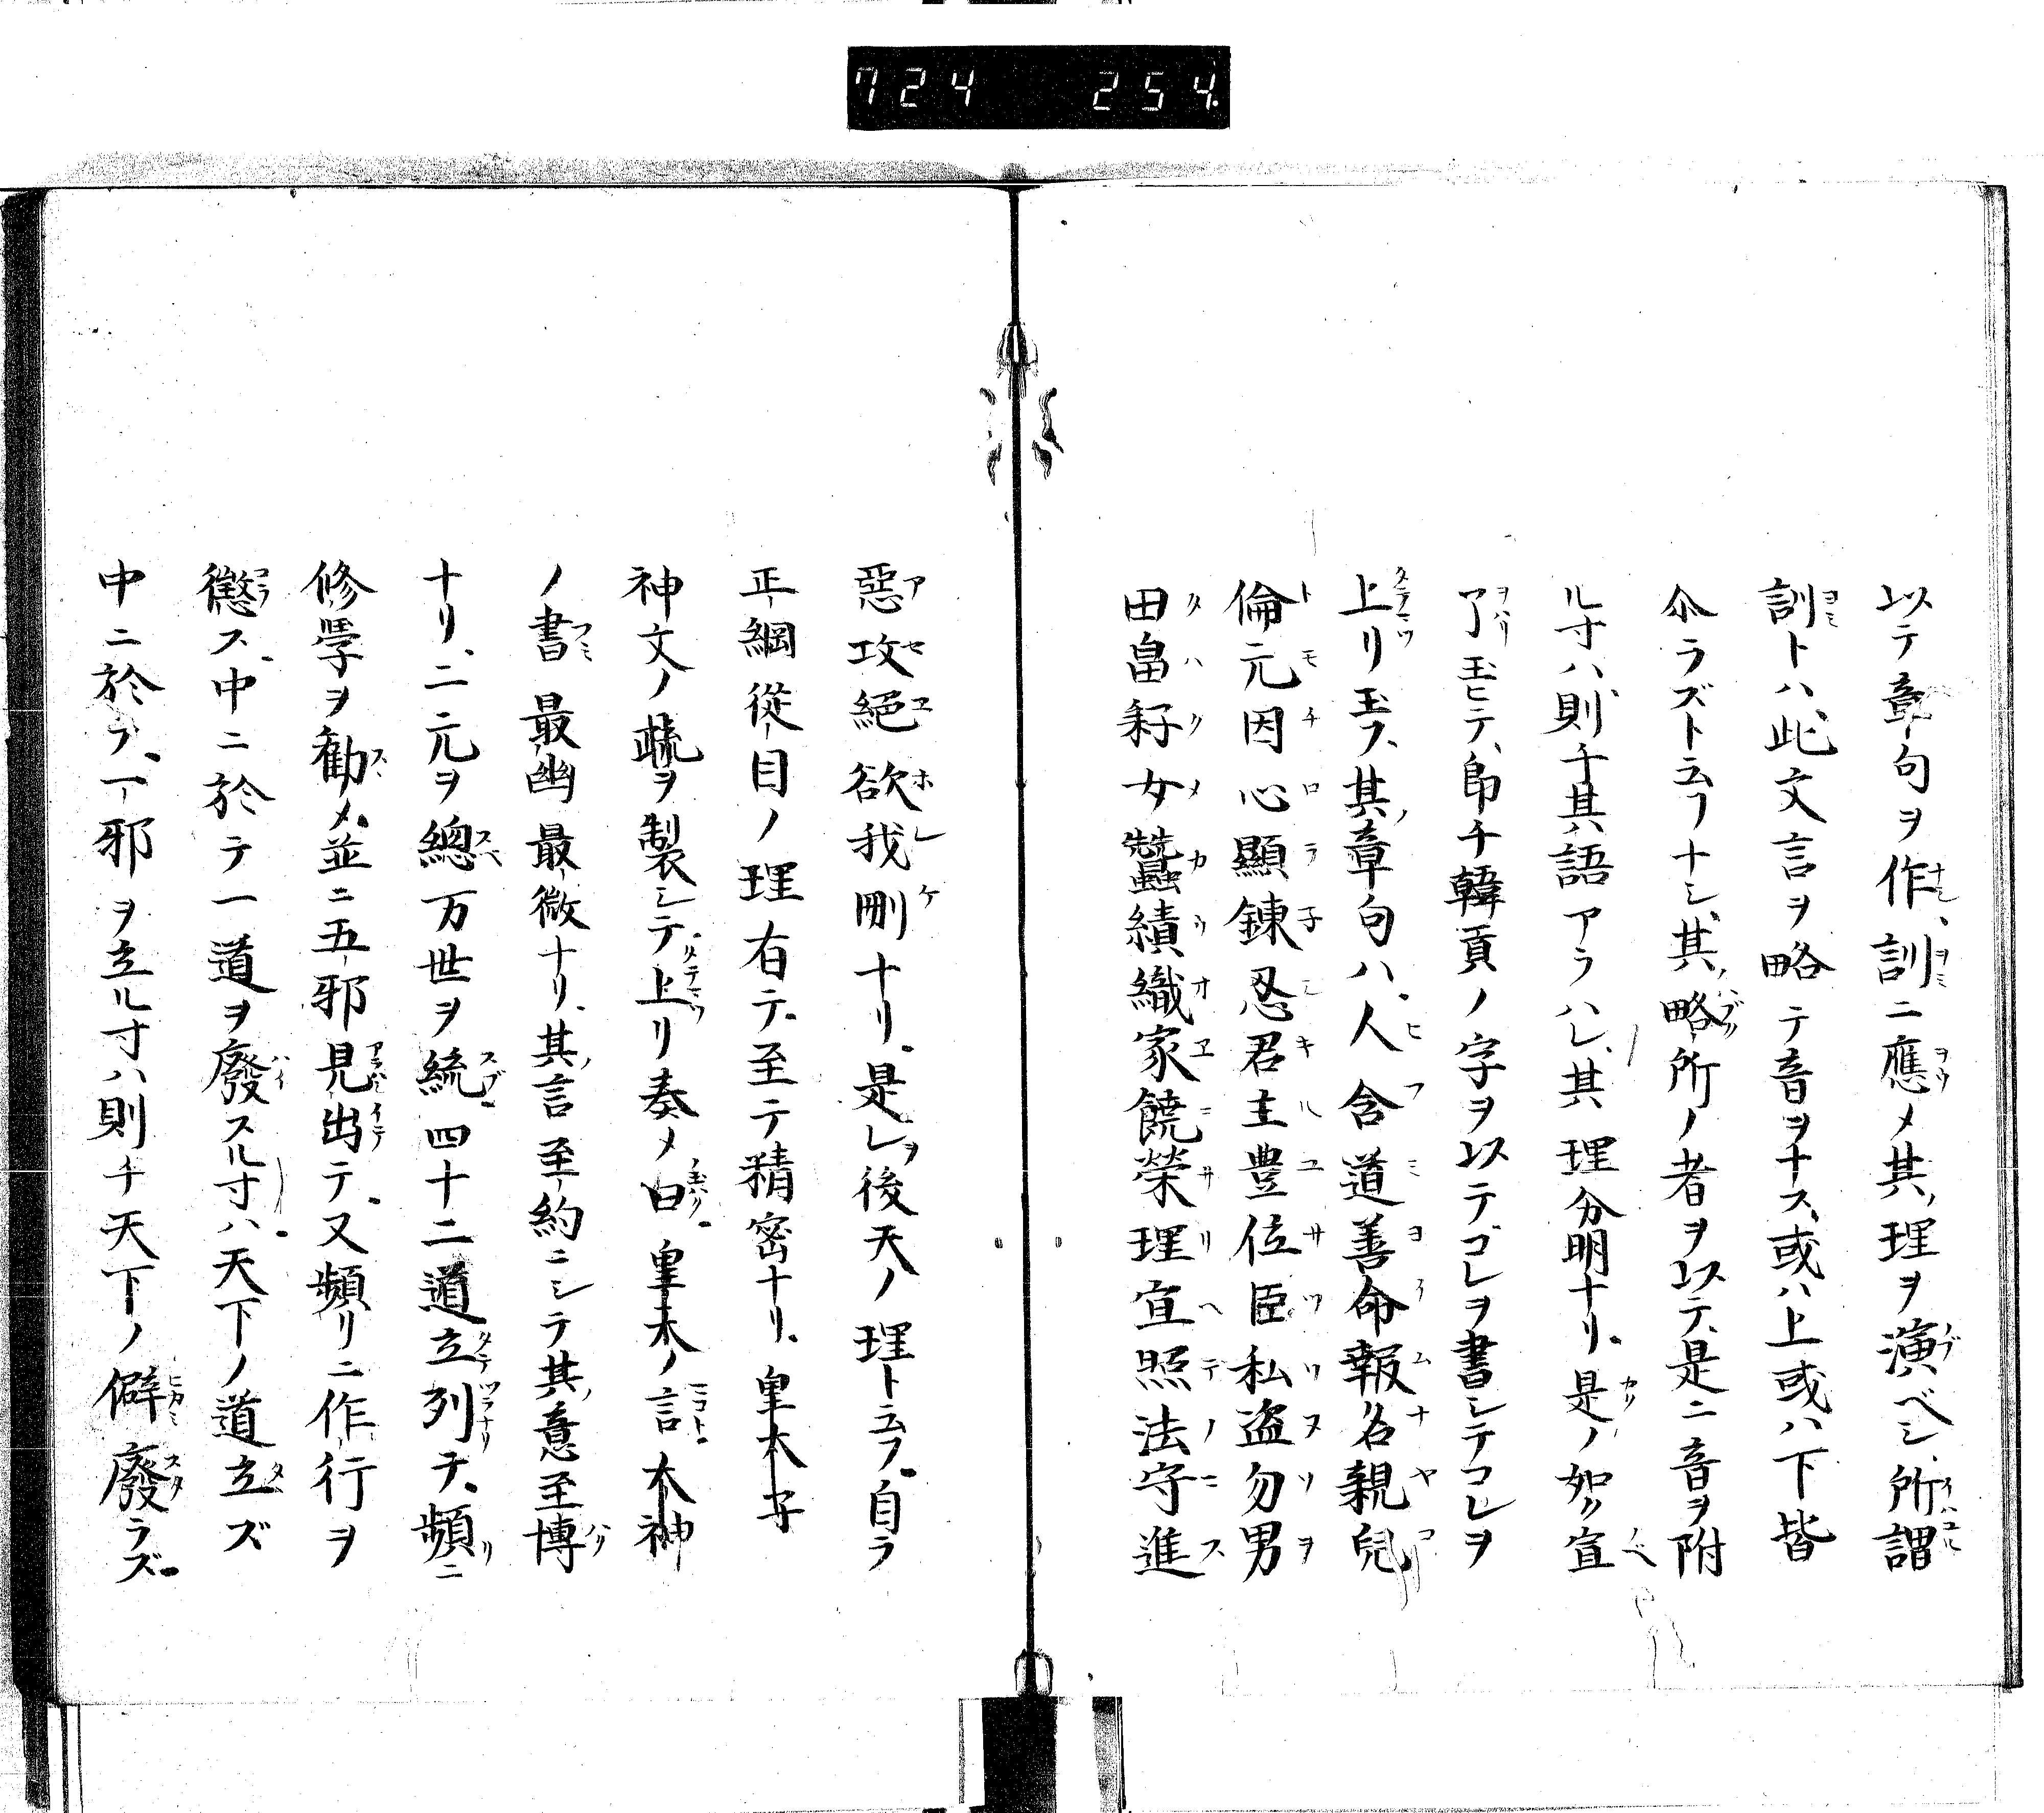 724 254.
以テ章句ヲ作シ、訓ニ應メ其ノ理ヲ演ベシ、所謂
訓トハ、此文言ヲ略テ音ヲナス、或ハ上或ハ下皆
尒ラズト云フナシ、其ノ略所ノ者ヲ以テ、是ニ音ヲ附
ル寸ハ、則チ其語アラハレ、其理分明ナリ。是ノ如ク宣
了玉ヒテ、即チ韓貢ノ字ヲ以テ、コレヲ書シテコレヲ
上リ玉フ、其ノ章句ハ、人含道善命報名親兒
倫元因心顯錬忍君主豊位臣私盗勿男
田畠耔女蠶績織家饒榮理宜照法守進
惡攻絕欲我刪ナリ。是レヲ後天ノ理ト云フ。自ラ
正綱從目ノ理有テ、至テ精密ナリ。皇太子
神文ノ䟽ヲ製シテ、上リ奏メ曰。皇太ノ言。太神
ノ書最幽最微ナリ、其ノ言至約ニシテ其ノ意至博
ナリ、二元ヲ總万世ヲ統。四十二道立列テ、頻ニ
修學ヲ勸メ、並ニ五邪見出テ、又頻リニ作行ヲ
懲ス、中ニ於テ一道ヲ廢スル寸ハ、天下ノ道立ズ
中ニ於テ、一邪ヲ立ル寸ハ則チ天下ノ僻廢ラズ。